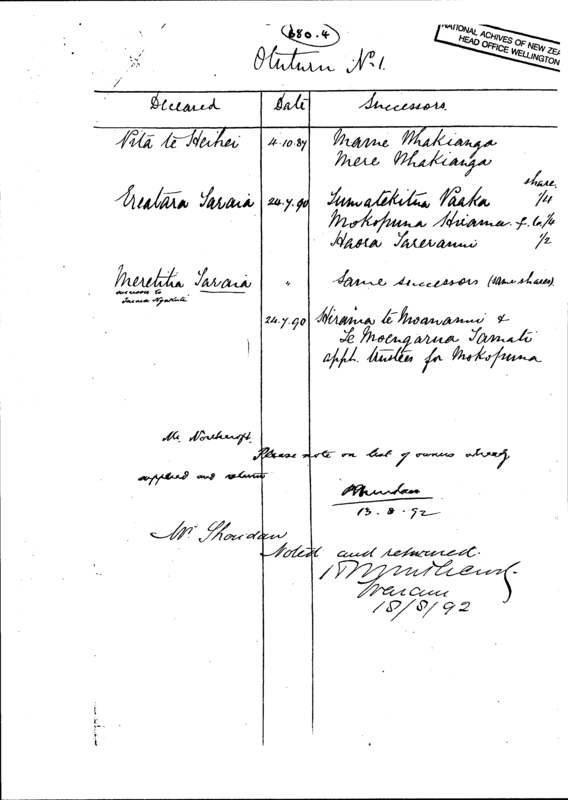 680.4
NATIONAL ACHIVES OF NEW ZEA
HEAD OFFICE WELLINGTON
Oruturu No. 1.
Deceased Date Successors.
Pita te Heihei 4.10.87 Mame Whakianga
Mere Whakianga
share.
Ereatara Taraia 24.7.90 Tumatekitua Paaka 1/4
Mokopuna Hirama f. 6a 1/4
Haora Tareranui 1/2
Meretitia Taraia " Same successors (same shares)
successor to
Taraia Ngakuti
24.7.90 Hirama te Moananui &
Te Moengarua Tamati
appt. trustees for Mokopuna
Mr. Northcroft.
Please note on list of owners already
supplied and return
13.8.92
Mr Sheridan
Noted and returned.
18/8/92